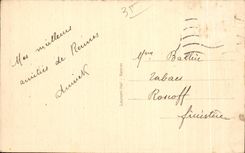 Mes meilleures
amitiés de Rennes
Annick
Mme
Tabacs
Roscoff
Finistère